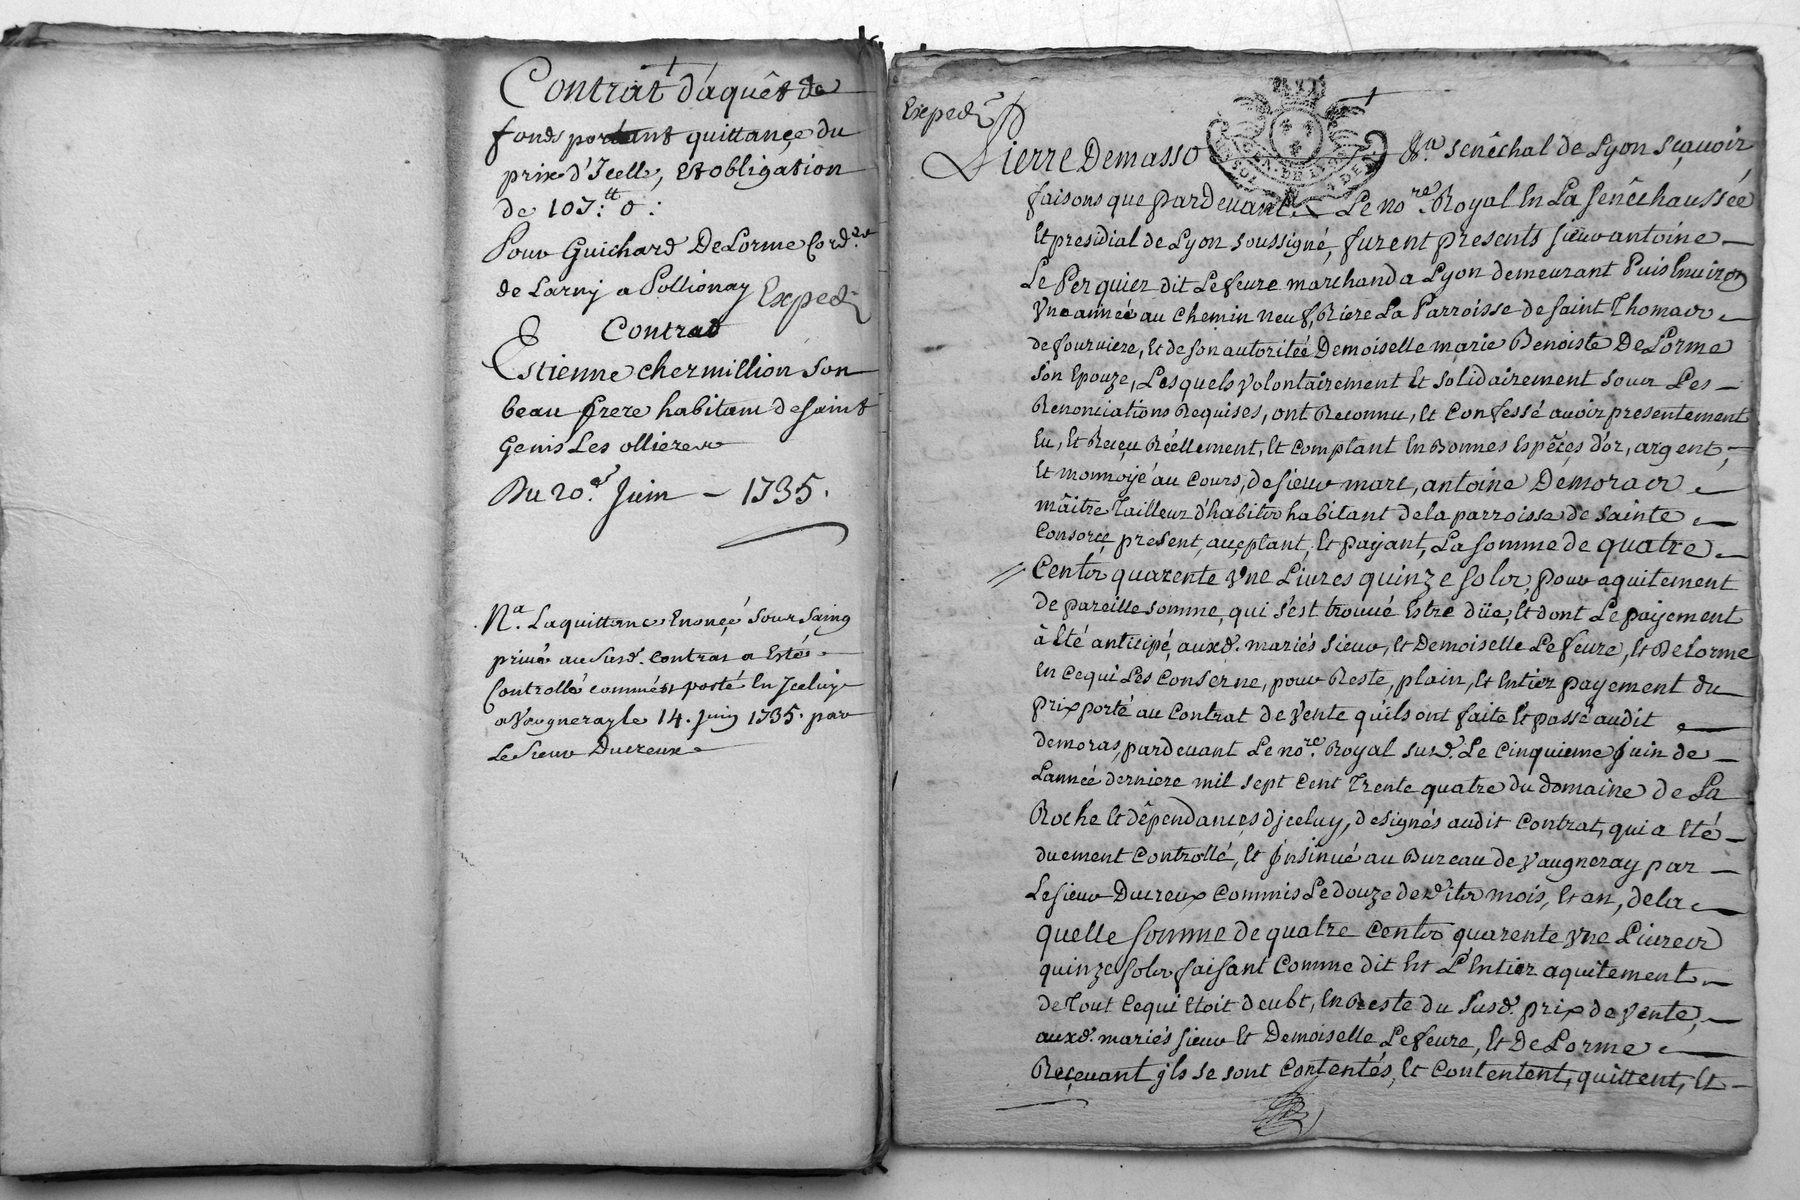 Contrat d'aquêt de
fonds portant quittançe du
prix d'Icelle, Et obligation
de 107:tt 0:
Pour Guichard DeLorme Cord.er
de Larny a Pollionay Exped.
Contrat
Estienne chermillion son
beau frere habitant de saint
Genis Les ollieres
Du 20.e Juin - 1735.
Na. La quittance Enonçé sous saing
privé au susd. contrat a Esté
Controllé comme est porté En Jceluy
a Vaugneray le 14. Juin 1735. par
Le Sieur Ducreux
Exped.
Pierre Demasso sénêchal de Lyon sçavoir
faisons que pardevant Le no.re Royal En La senêchaussée
Et presidial de Lyon soussigné, furent presents sieur antoine
Le Perquier dit Lefevre marchand a Lyon demeurant Puis Environ
Vne année au chemin neuf, Riere La Parroisse de saint Thomas
de fourviere, Et de son autoritéé Demoiselle marie Benoiste DeLorme
son Epouze, Lesquels volontairement Et solidairement sous Les
Renonciations Requises, ont Reconnu, Et Confessé avoir presentement
Eu, Et Reçu Réellement, Et Comptant En Bonnes Espêçes d'or, argent,
Et monnoyé au Cours, de sieur marc, antoine Demoras
mâitre Tailleur d'habits habitant de la parroisse de sainte
Consorçe, present, acçeptant, Et payant, La somme de quatre
Cents quarente Vne Livres quinze sols, pour aquitement
de pareille somme, qui s'est trouvé Estre düe, Et dont Le payement
à Eté anticipé, auxd. mariés sieur, Et Demoiselle Lefevre, Et DeLorme
En Ce qui Les Conserne, pour Reste, plain, Et Entier payement du
prix porté au Contrat de Vente qu'ils ont faite Et passé audit
demoras, pardevant Le no.re Royal susd. Le Cinquieme Juin de
Lannéé derniere mil sept Cent Trente quatre du domaine de La
Roche Et dêpendances d'jceluy, designés audit Contrat, qui a Eté
duement Controllé, Et Jnsinué au Bureau de Vaugneray par
Le sieur Ducreux Commis Le douze desdits mois, Et an, de la
quelle somme de quatre Cents quarente Vne Livres
quinze sols faisant Comme dit Est L'Entier aquitement
de Tout Ce qui Etoit deubt, En Reste du susd. prix de Vente,
auxd. mariés sieur Et Demoiselle Lefevre, Et DeLorme
Reçevant jls se sont Contentés, Et Contentent, quittent, Et